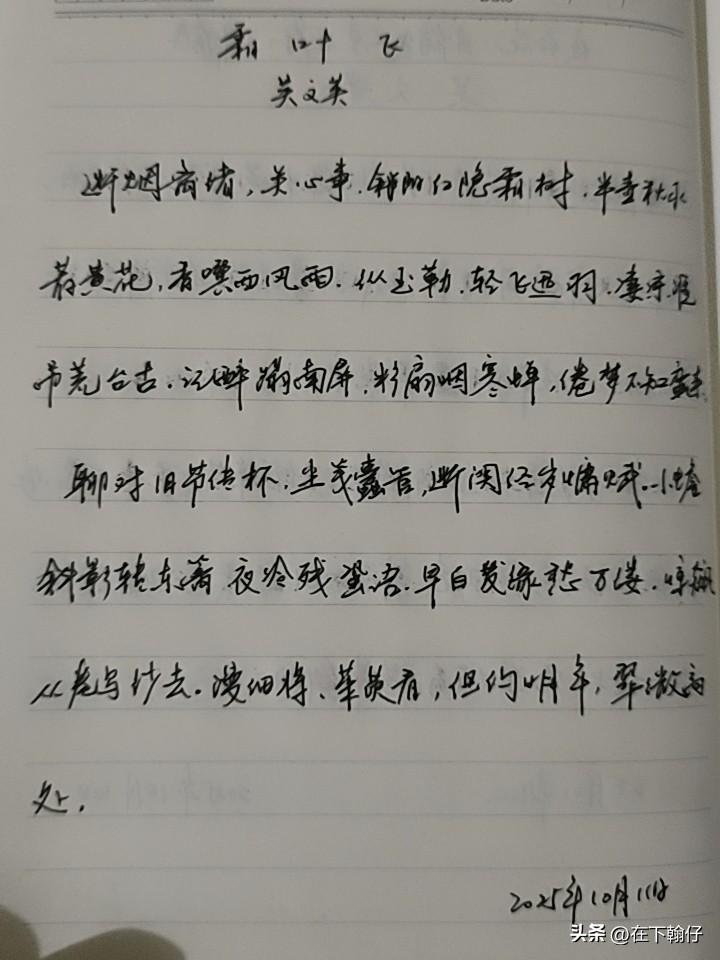 霜叶飞
吴文英
断烟离绪，关心事，斜阳红隐霜树。半壶秋水
荐黄花，香噀西风雨。纵玉勒、轻飞迅羽，凄凉谁
吊荒台古。记醉蹋南屏，彩扇咽寒蝉，倦梦不知蛮素
聊对旧节传杯，尘笺蠹管，断阕经岁慵赋。小蟾
斜影转东篱，夜冷残蛩语。早白发、缘愁万缕。惊飙
从卷乌纱去。漫细将、茱萸看，但约明年，翠微高
处。
2025年10月11日
头条 @在下翰仔